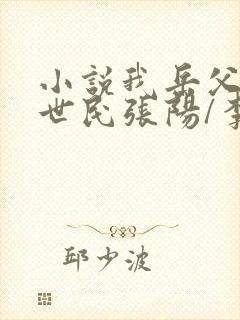 小説我岳父
世民張陽/李
邱少波